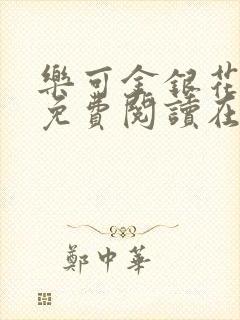 樂可金銀花
免費閱讀在
鄭中華